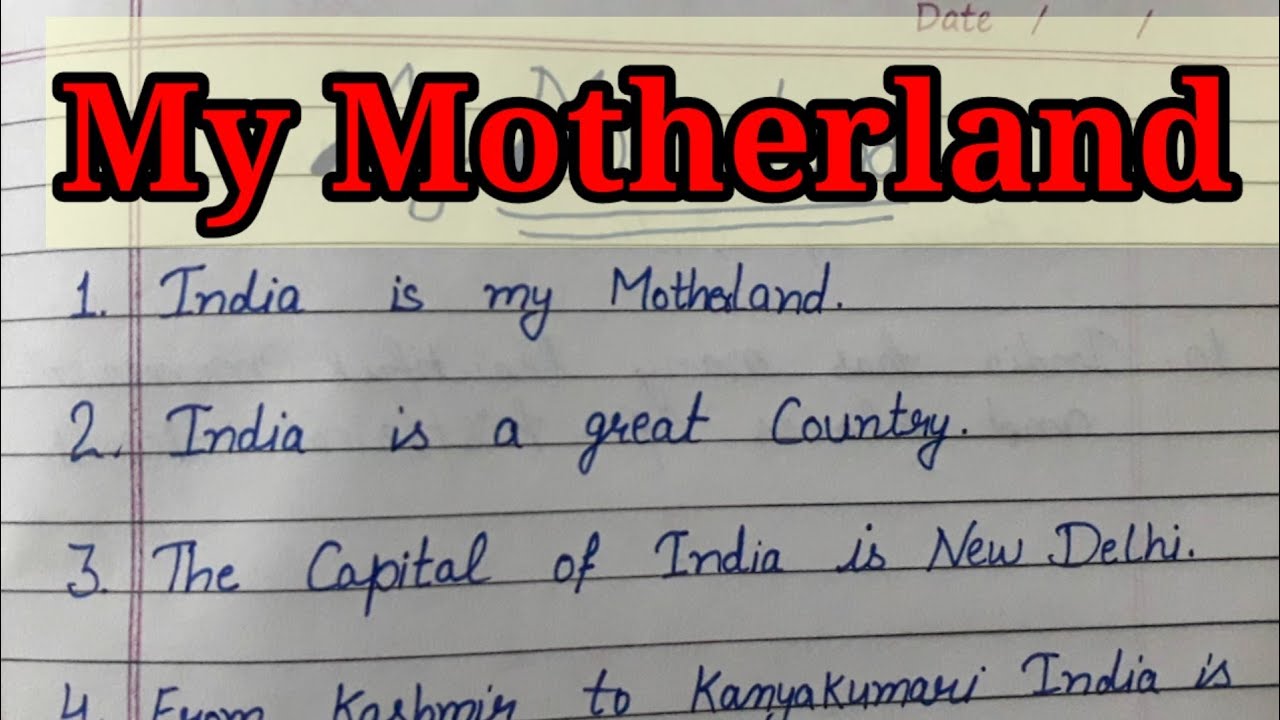 Date / /
My Motherland
1. India is my Motherland.
2. India is a great Country.
3. The Capital of India is New Delhi.
4. From Kashmir to Kanyakumari India is